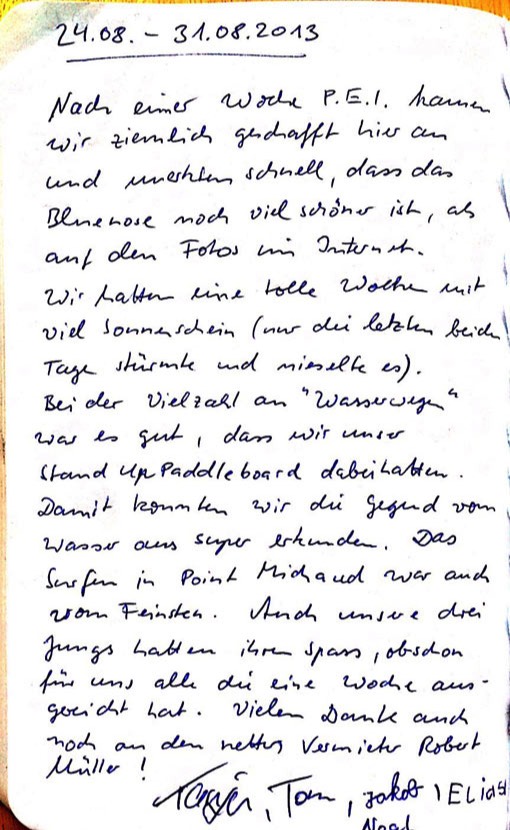 24.08. - 31.08.2013
Nach einer Woche P.E.I. kamen
wir ziemlich geschafft hier an
und merkten schnell, dass das
Bluenose noch viel schöner ist, als
auf den Fotos im Internet.
Wir hatten eine tolle Woche mit
viel Sonnenschein (nur die letzten beiden
Tage stürmte und nieselte es).
Bei der Vielzahl an "Wasserwegen"
war es gut, dass wir unser
Stand Up Paddleboard dabeihatten.
Damit konnten wir die Gegend vom
Wasser aus super erkunden. Das
Surfen in Point Michaud war auch
vom Feinsten. Auch unsere drei
Jungs hatten ihren Spass, obschon
für uns alle die eine Woche aus-
gereicht hat. Vielen Dank auch
noch an den netten Vermieter Robert
Müller!
, Tom, Jakob, Elias